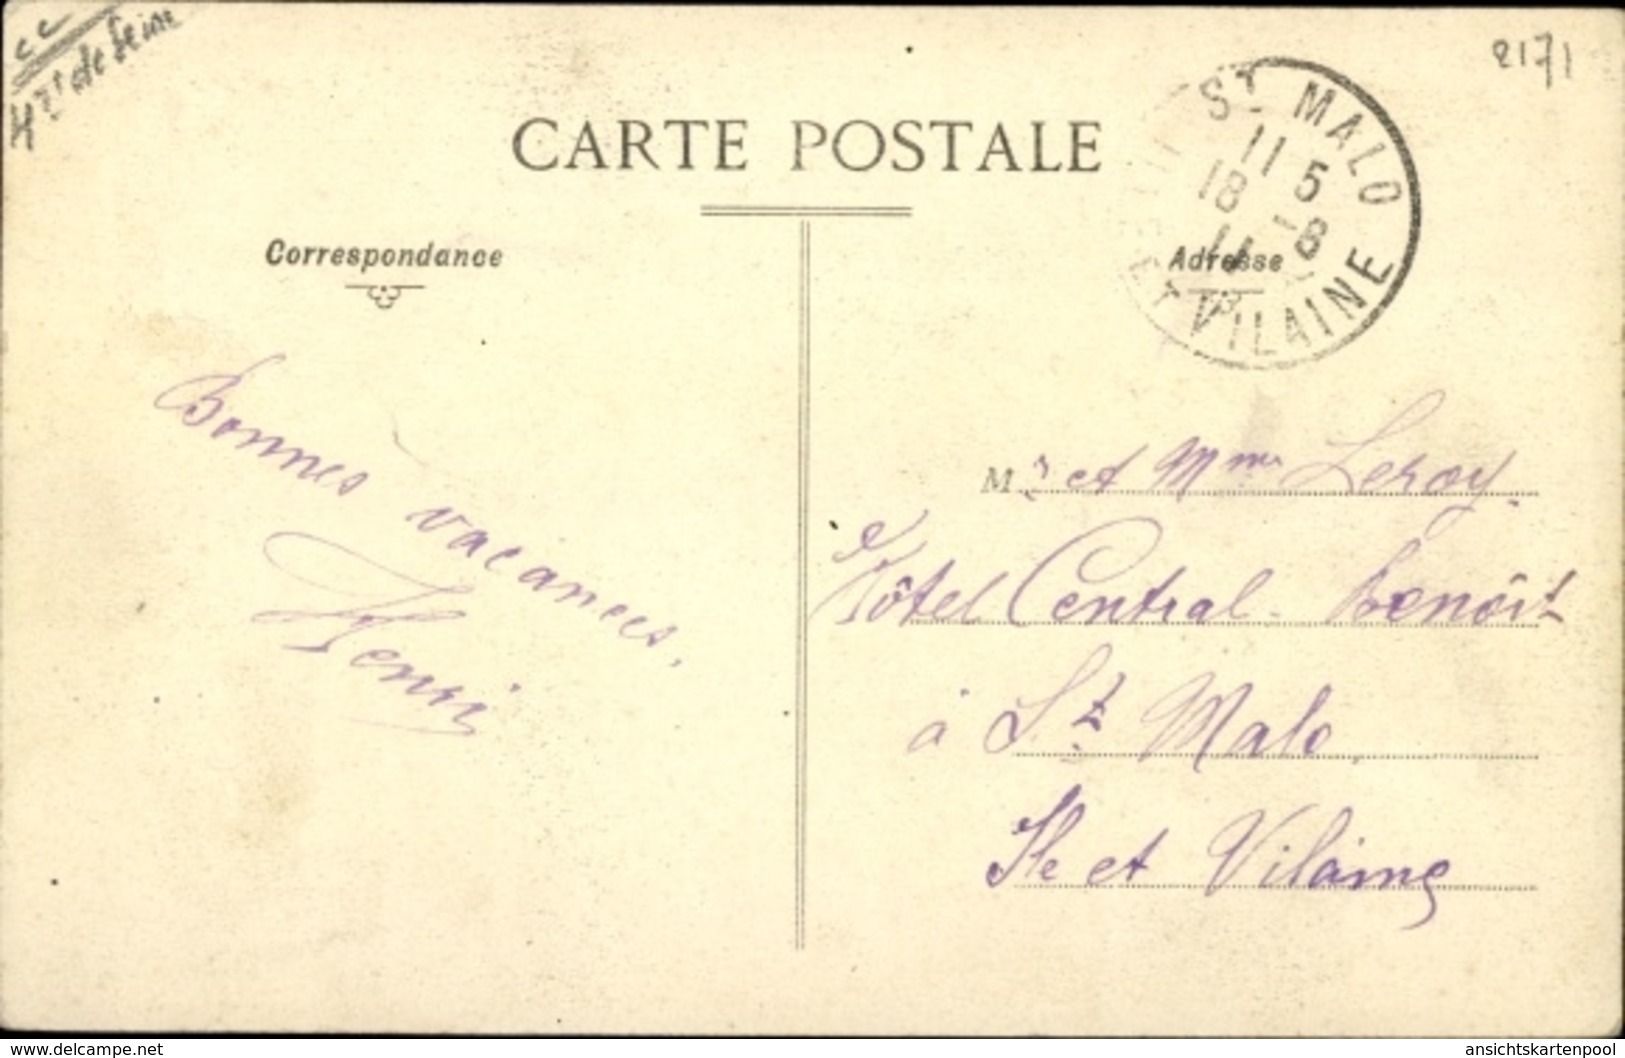 cc
Hts de Seine
2171
CARTE POSTALE
ST MALO
11 5
18 -8
11
ET VILAINE
Correspondance
Adresse
Bonnes vacances.
Henri
Mr et Mme Leroy.
Hôtel Central-Benoît
à St Malo
Ile et Vilaine
www.delcampe.net
ansichtskartenpool